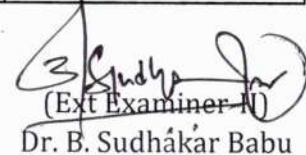 (Ext Examiner-II)
Dr. B. Sudhakar Babu